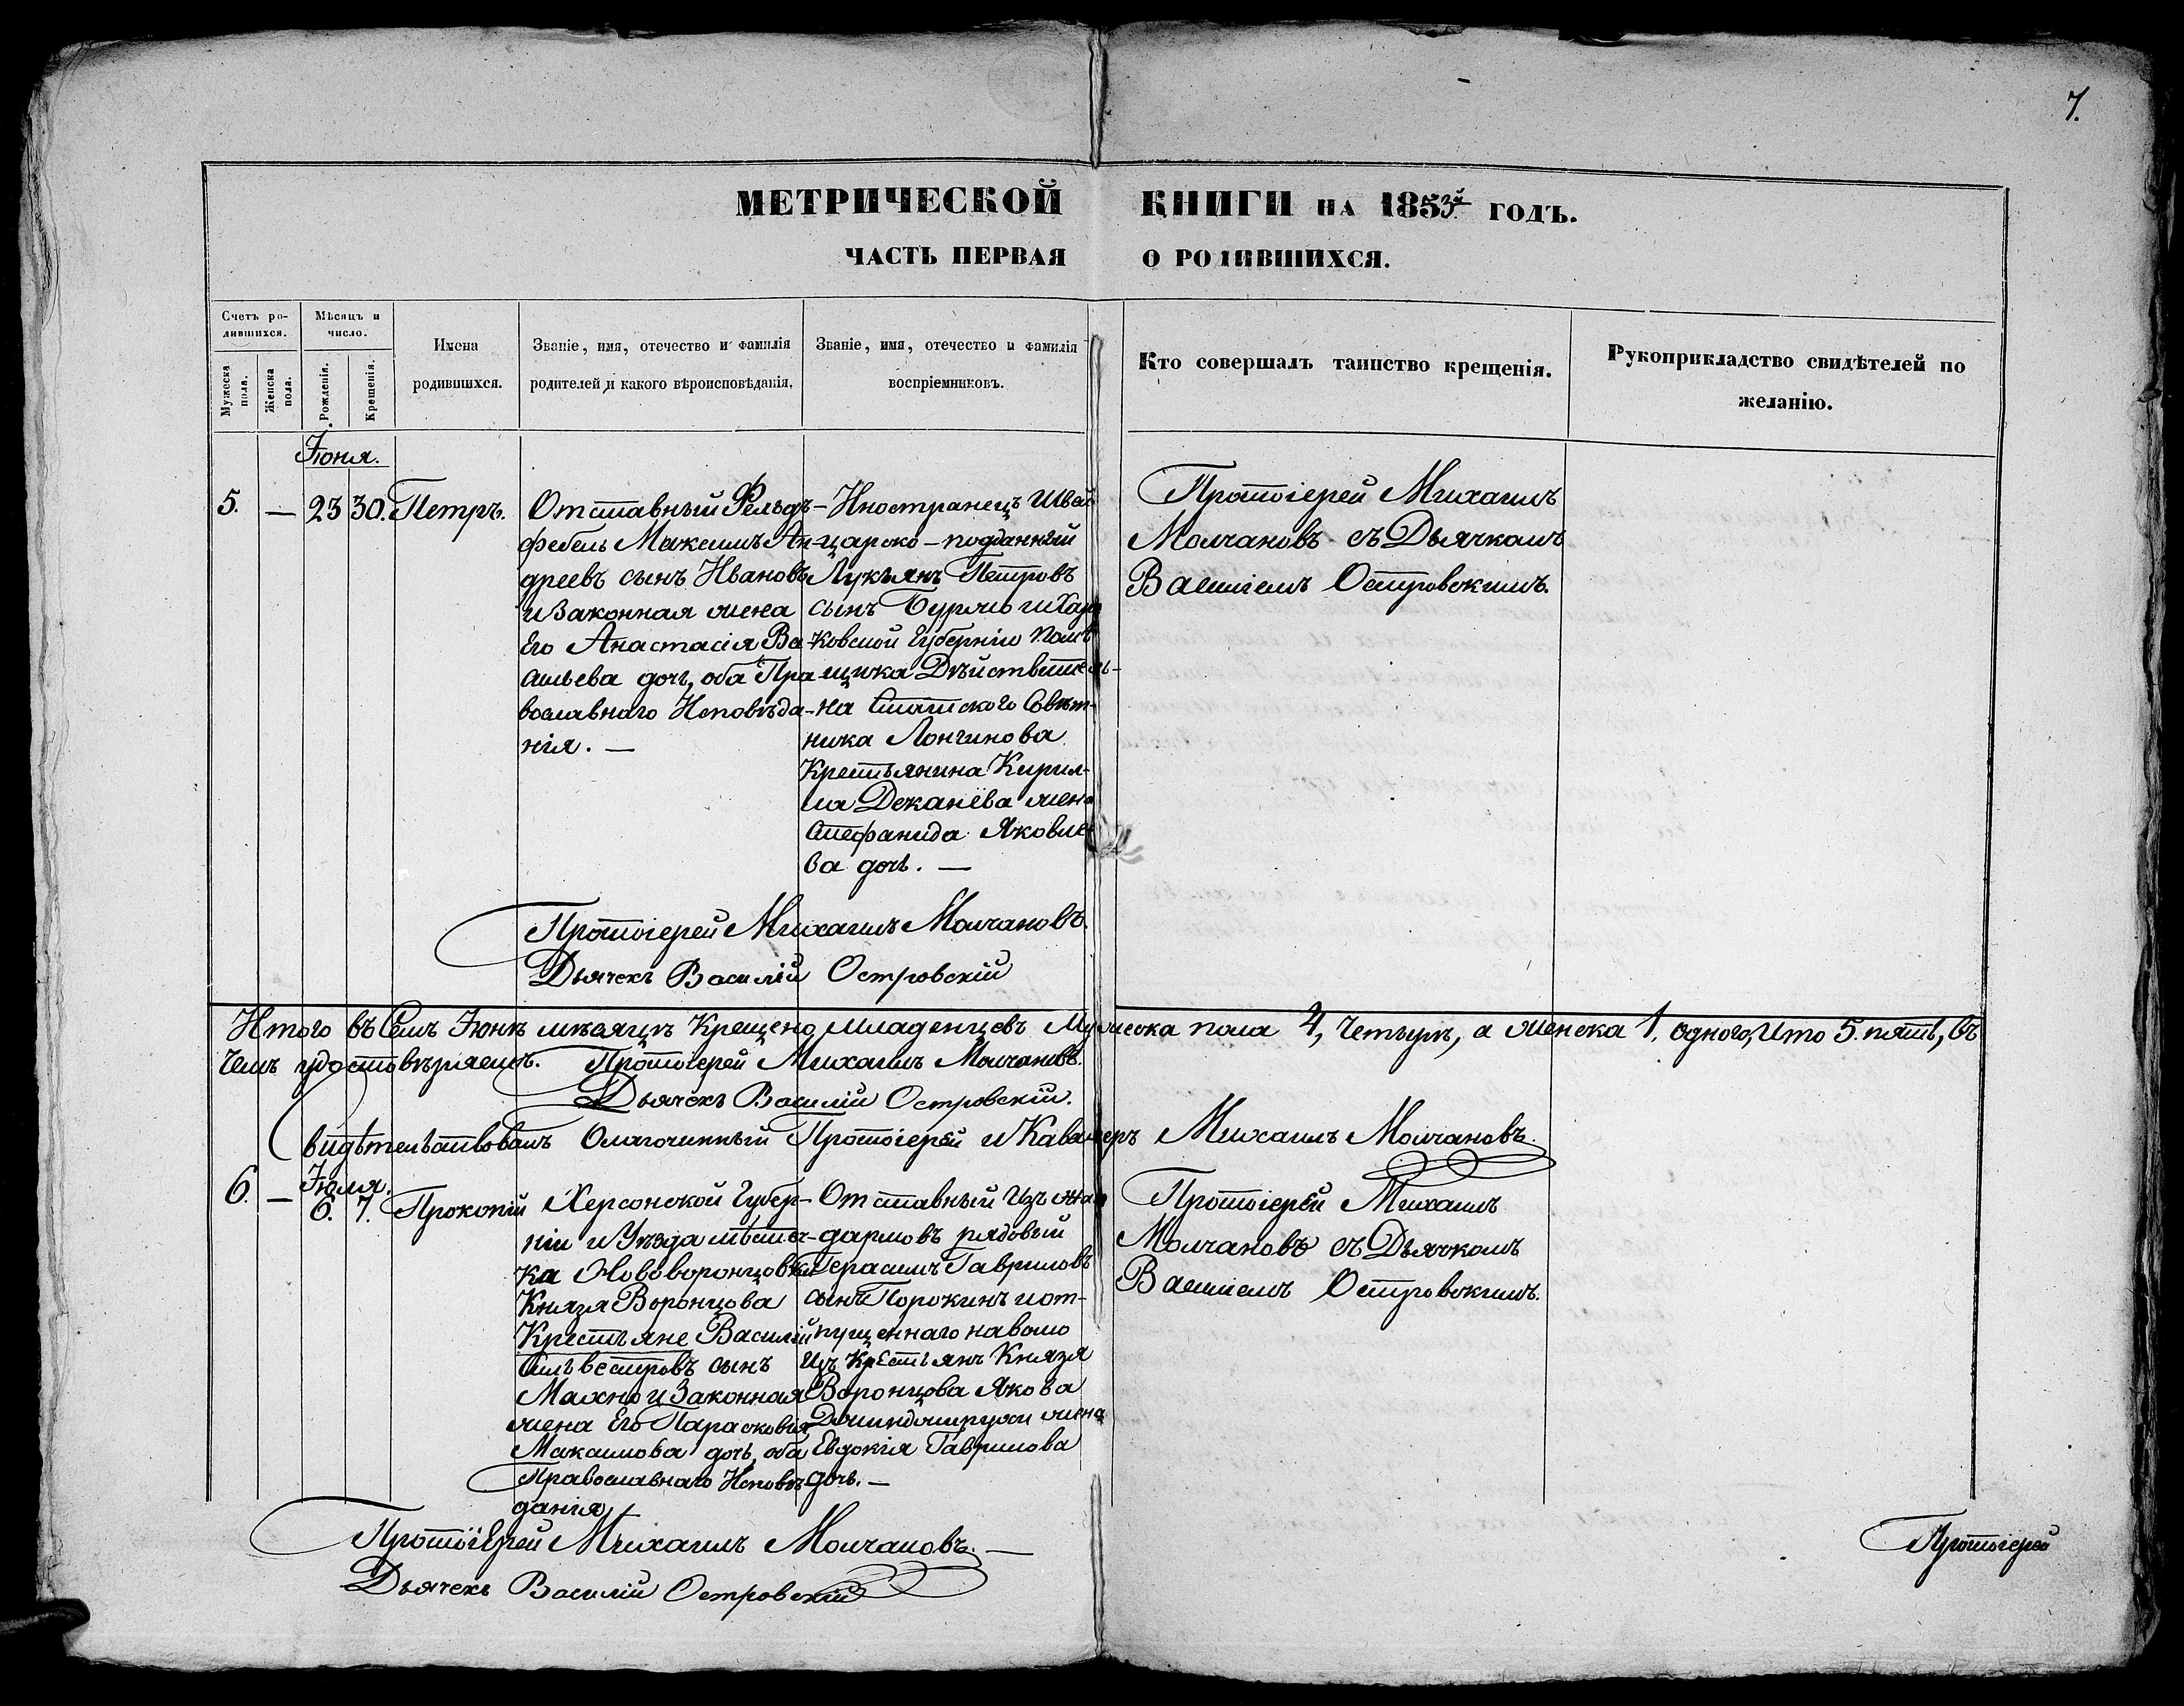 7.
МЕТРИЧЕСКОЙ КНИГИ НА 1853й ГОДЪ.
ЧАСТЬ ПЕРВАЯ О РОДИВШИХСЯ.
Счетъ ро-
дившихся.
Мужеска
пола.
Женска
пола.
Мѣсяцъ и
число.
Рожденія.
Крещенія.
Имена
родившихся.
Званіе, имя, отечество и фамилія
родителей, и какого вѣроисповѣданія.
Званіе, имя, отечество и фамилія
воспріемниковъ.
Кто совершалъ таинство крещенія.
Рукоприкладство свидѣтелей по
желанію.
Іюня.
5. — 23 30. Петръ.
Отставный Фельд-
фебель Максимъ Ан-
дреевъ сынъ Ивановъ
и Законная жена
Его Анастасія Ва-
сильева дочь, оба Пра-
вославнаго Исповѣда-
нія. —
Иностранецъ Швей-
царско-подданный
Лукъянъ Петровъ
сынъ и Харь
ковской Губерніи Помѣ
щика Дѣйствитель-
на Статского Совѣт-
ника Лонгинова
Крестьянина Кирил-
ла Деканёва жена
Стефанида Яковле
ва дочь. —
Протоіерей Михаилъ
Молчановъ съ Дьячкомъ
Василіемъ Островскимъ.
Протоіерей Михаилъ Молчановъ.
Дьячекъ Василій Островскій
Итого въ Семъ Іюнѣ мѣсяцѣ Крещено младенцевъ Мужеска пола 4, Четыре, а женска 1, одного, Ито 5. пять, въ
Чемъ удостовѣряемъ. Протоіерей Михаилъ Молчановъ.
Дьячекъ Василій Островскій.
Свидѣтельствовалъ Благочинный Протоіерей и Кавалеръ Михаилъ Молчановъ.
Іюля.
6. — 6. 7. Прокопій
Херсонской Губер-
ніи и Уѣзда мѣстеч-
ка Нововоронцовки
Князя Воронцова
Крестьяне Василій
Сильвестровъ сынъ
Махно и Законная
жена Его Парасковія
Максимова дочь, оба
Православнаго Исповѣ
данія
Отставный изъ жан
дармовъ рядовый
Герасимъ Гавриловъ
сынъ Порокинъ и от-
пущеннаго на волю
Изъ Крестьянъ Князя
Воронцова Якова
жена
Евдокія Гаврилова
дочь. —
Протоіерей Михаилъ
Молчановъ съ Дьячкомъ
Василіемъ Островскимъ.
Протоіерей Михаилъ Молчановъ. —
Дьячекъ Василій Островскій
Протоіерей